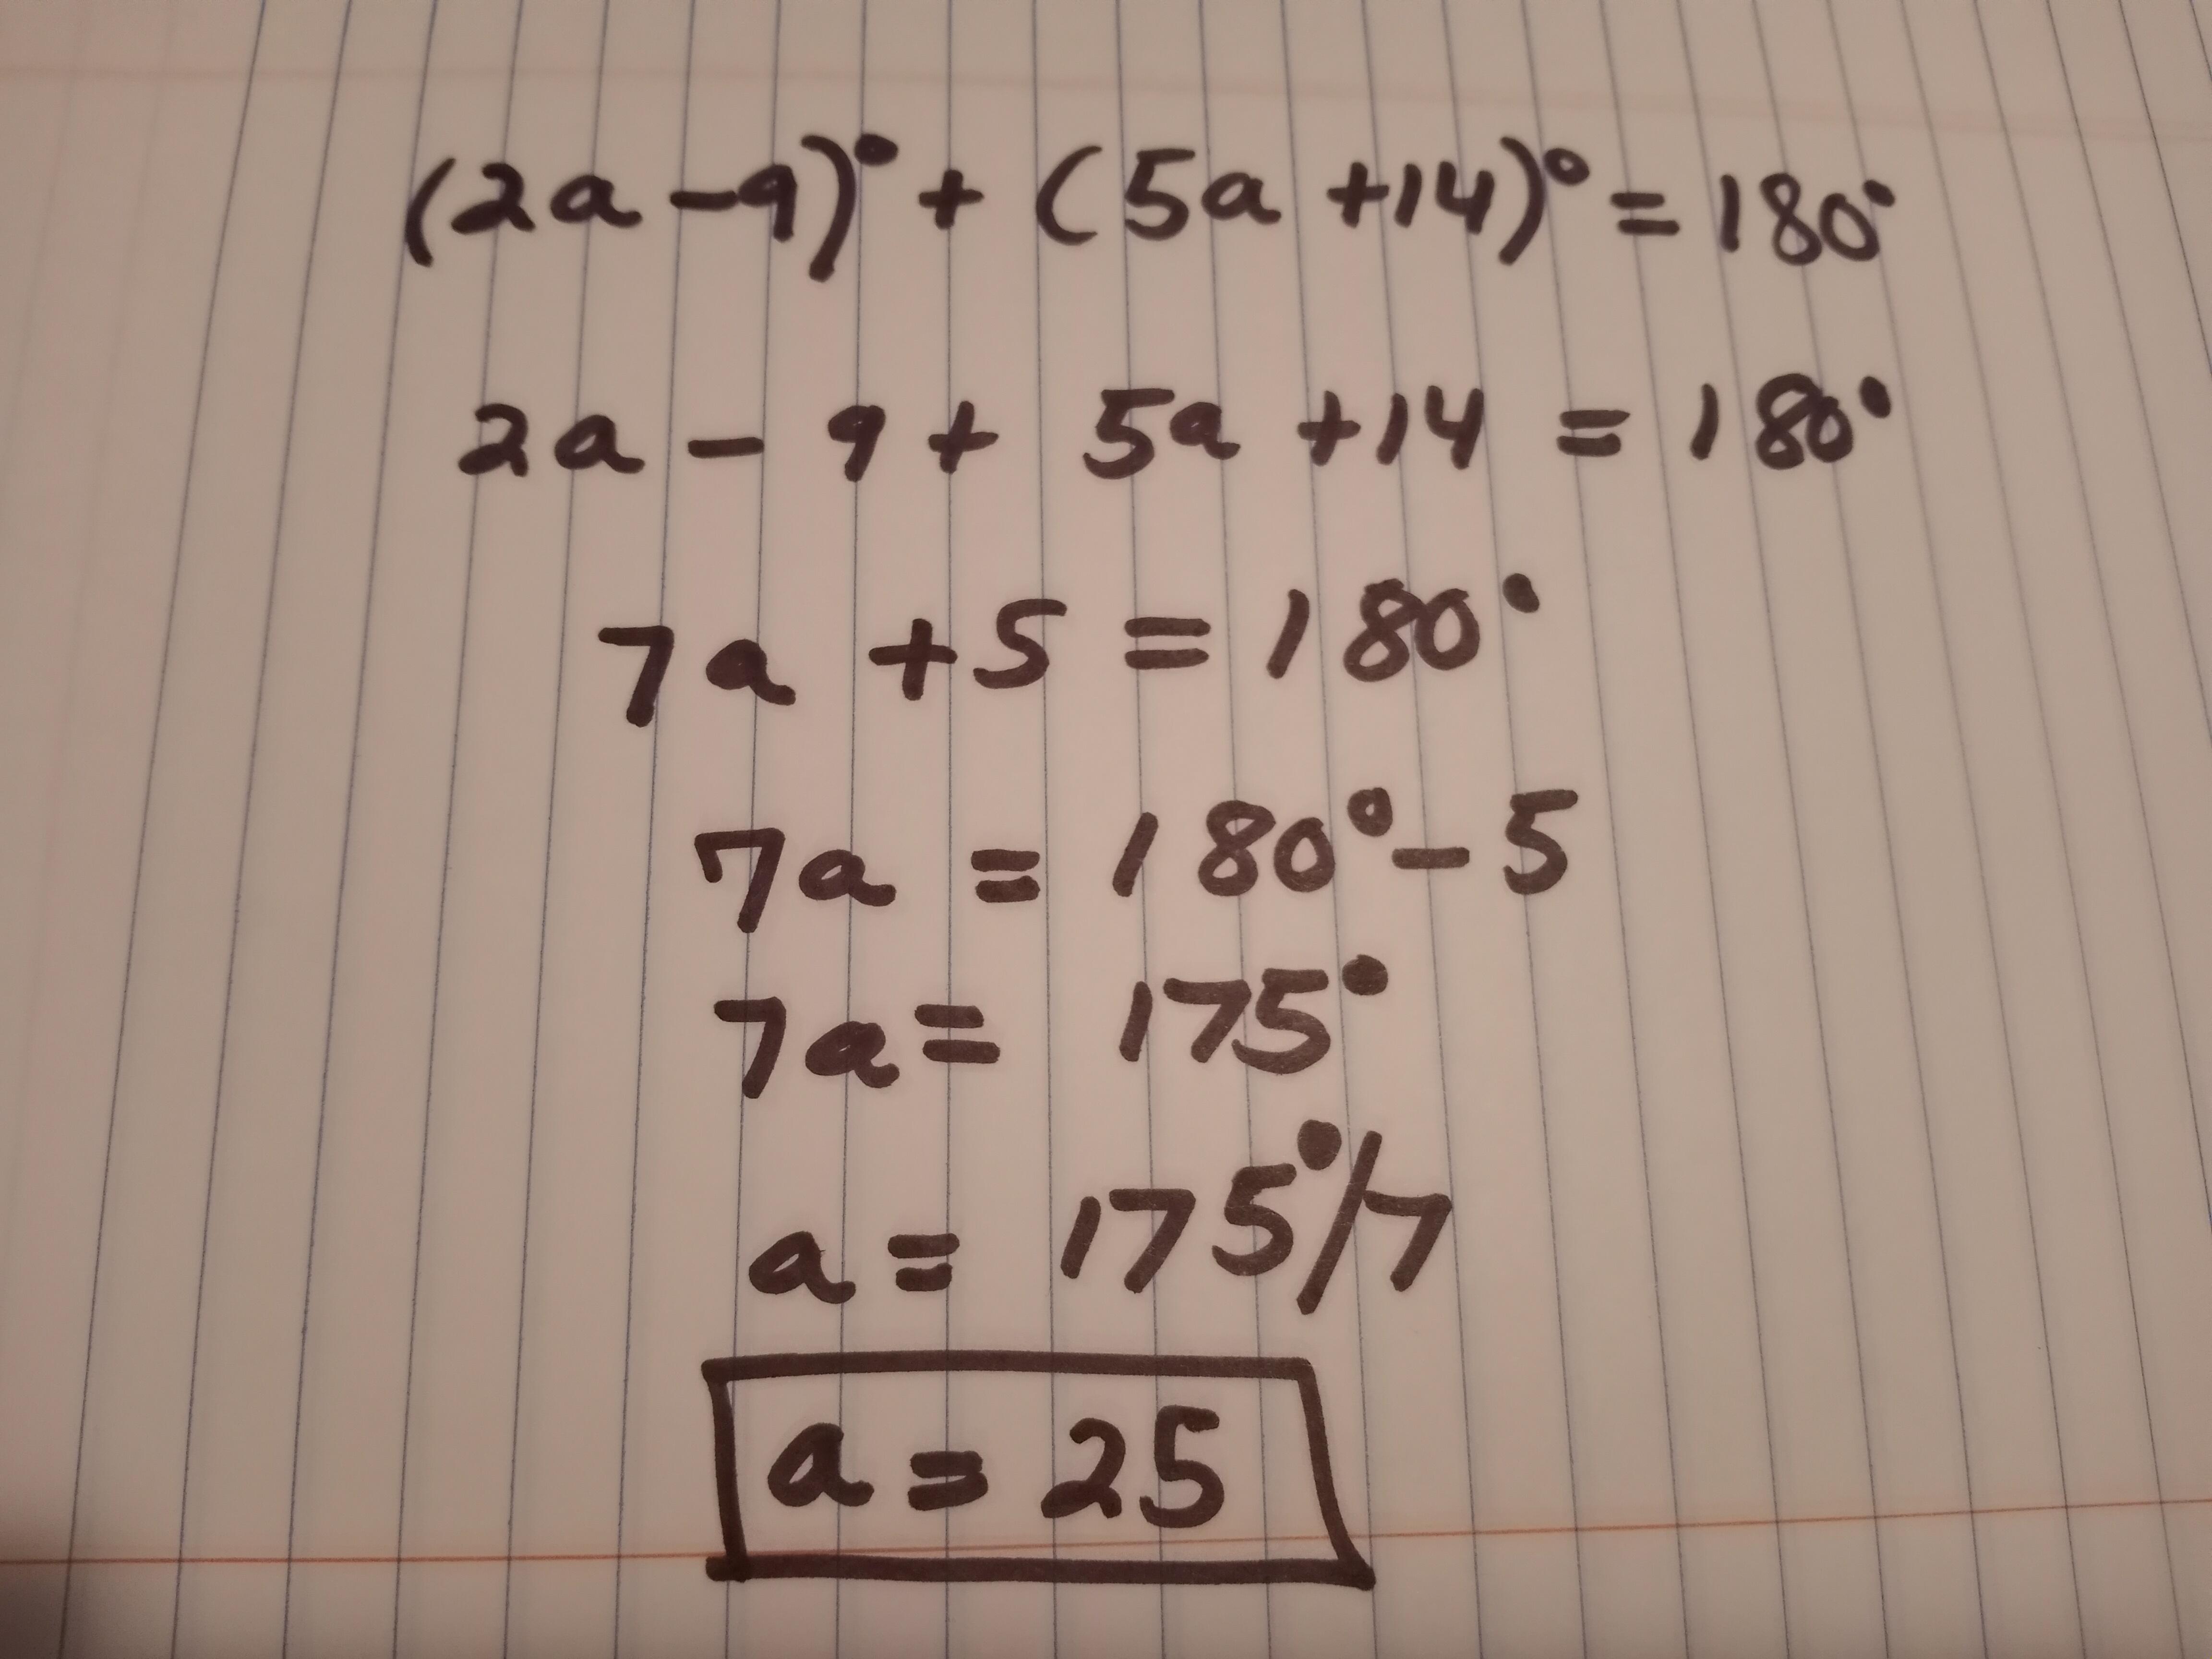 (2a - 9)° + (5a + 14)° = 180°
2a - 9 + 5a + 14 = 180°
7a + 5 = 180°
7a = 180° - 5
7a = 175°
a = 175°/7
a = 25